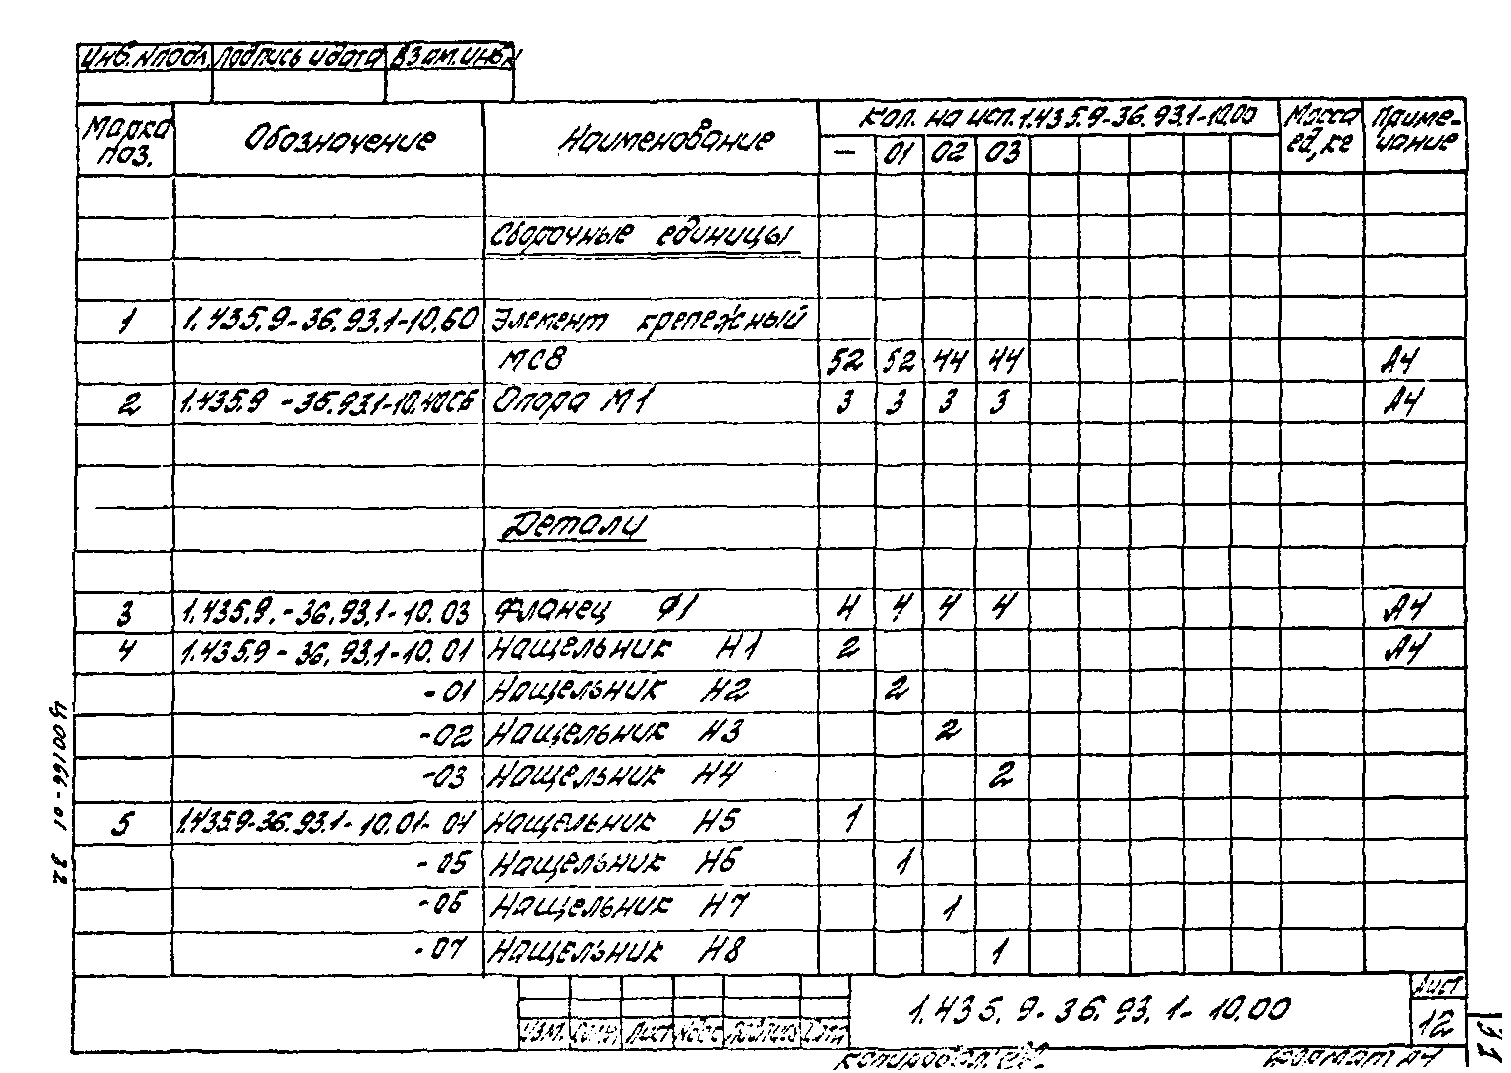 Инв. № подл. Подпись и дата Взам. инв. №
Марка поз. Обозначение Наименование Кол. на исп. 1.435.9-36.93.1-10.00 Масса ед, кг Приме-чание
— 01 02 03
Сборочные единицы
1 1.435.9-36.93.1-10.60 Элемент крепежный
МС8 52 52 44 44 А4
2 1.435.9-36.93.1-10.40СБ Опора М1 3 3 3 3 А4
Детали
3 1.435.9.-36.93.1-10.03 Фланец Ф1 4 4 4 4 А4
4 1.435.9-36.93.1-10.01 Нащельник Н1 2 А4
-01 Нащельник Н2 2
-02 Нащельник Н3 2
-03 Нащельник Н4 2
5 1.435.9-36.93.1-10.01-04 Нащельник Н5 1
-05 Нащельник Н6 1
-06 Нащельник Н7 1
-07 Нащельник Н8 1
Изм. Лист №док Подпись Дата
1.435.9-36.93.1-10.00
Лист
12
Копировал:
Формат А4
Ц00166-01 32